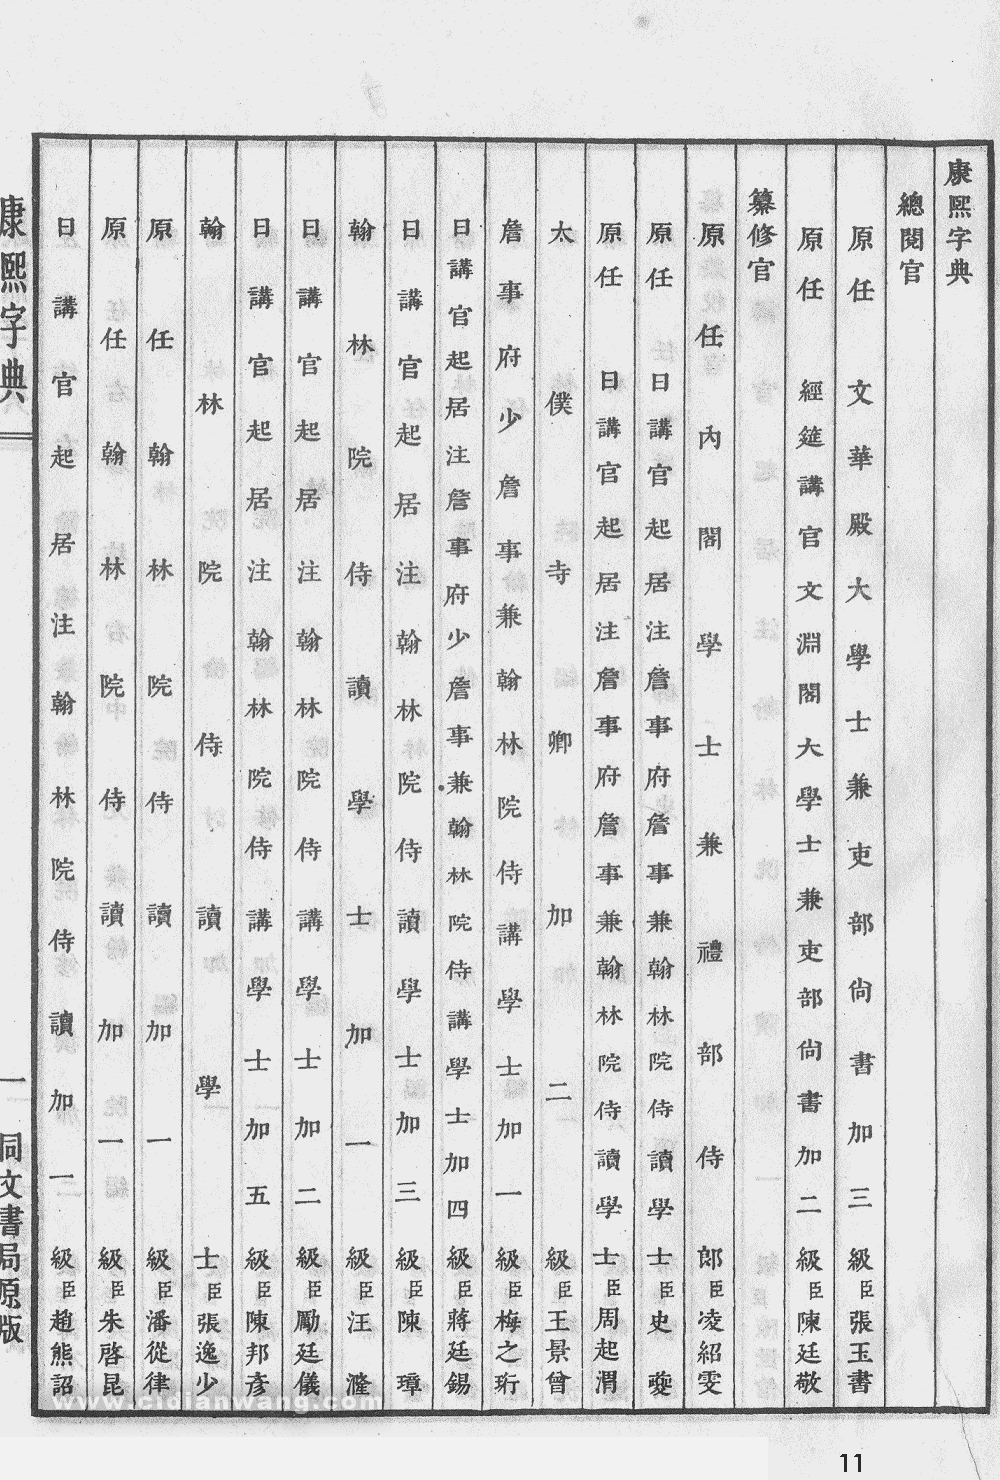 康熙字典
總閱官
原任文華殿大學士兼吏部尙書加三級臣張玉書
原任經筵講官文淵閣大學士兼吏部尙書加二級臣陳廷敬
纂修官
原任內閣學士兼禮部侍郎臣凌紹雯
原任日講官起居注詹事府詹事兼翰林院侍讀學士臣史夔
原任日講官起居注詹事府詹事兼翰林院侍讀學士臣周起渭
太僕寺卿加二級臣王景曾
詹事府少詹事兼翰林院侍講學士加一級臣梅之珩
日講官起居注詹事府少詹事兼翰林院侍講學士加四級臣蔣廷錫
日講官起居注翰林院侍讀學士加三級臣陳璋
翰林院侍讀學士加一級臣汪漋
日講官起居注翰林院侍講學士加二級臣勵廷儀
日講官起居注翰林院侍講學士加五級臣陳邦彥
翰林院侍讀學士臣張逸少
原任翰林院侍讀加一級臣潘從律
原任翰林院侍讀加一級臣朱啓昆
日講官起居注翰林院侍讀加一級臣趙熊詔
康熙字典
一
同文書局原版
www.cidianwang.com
11